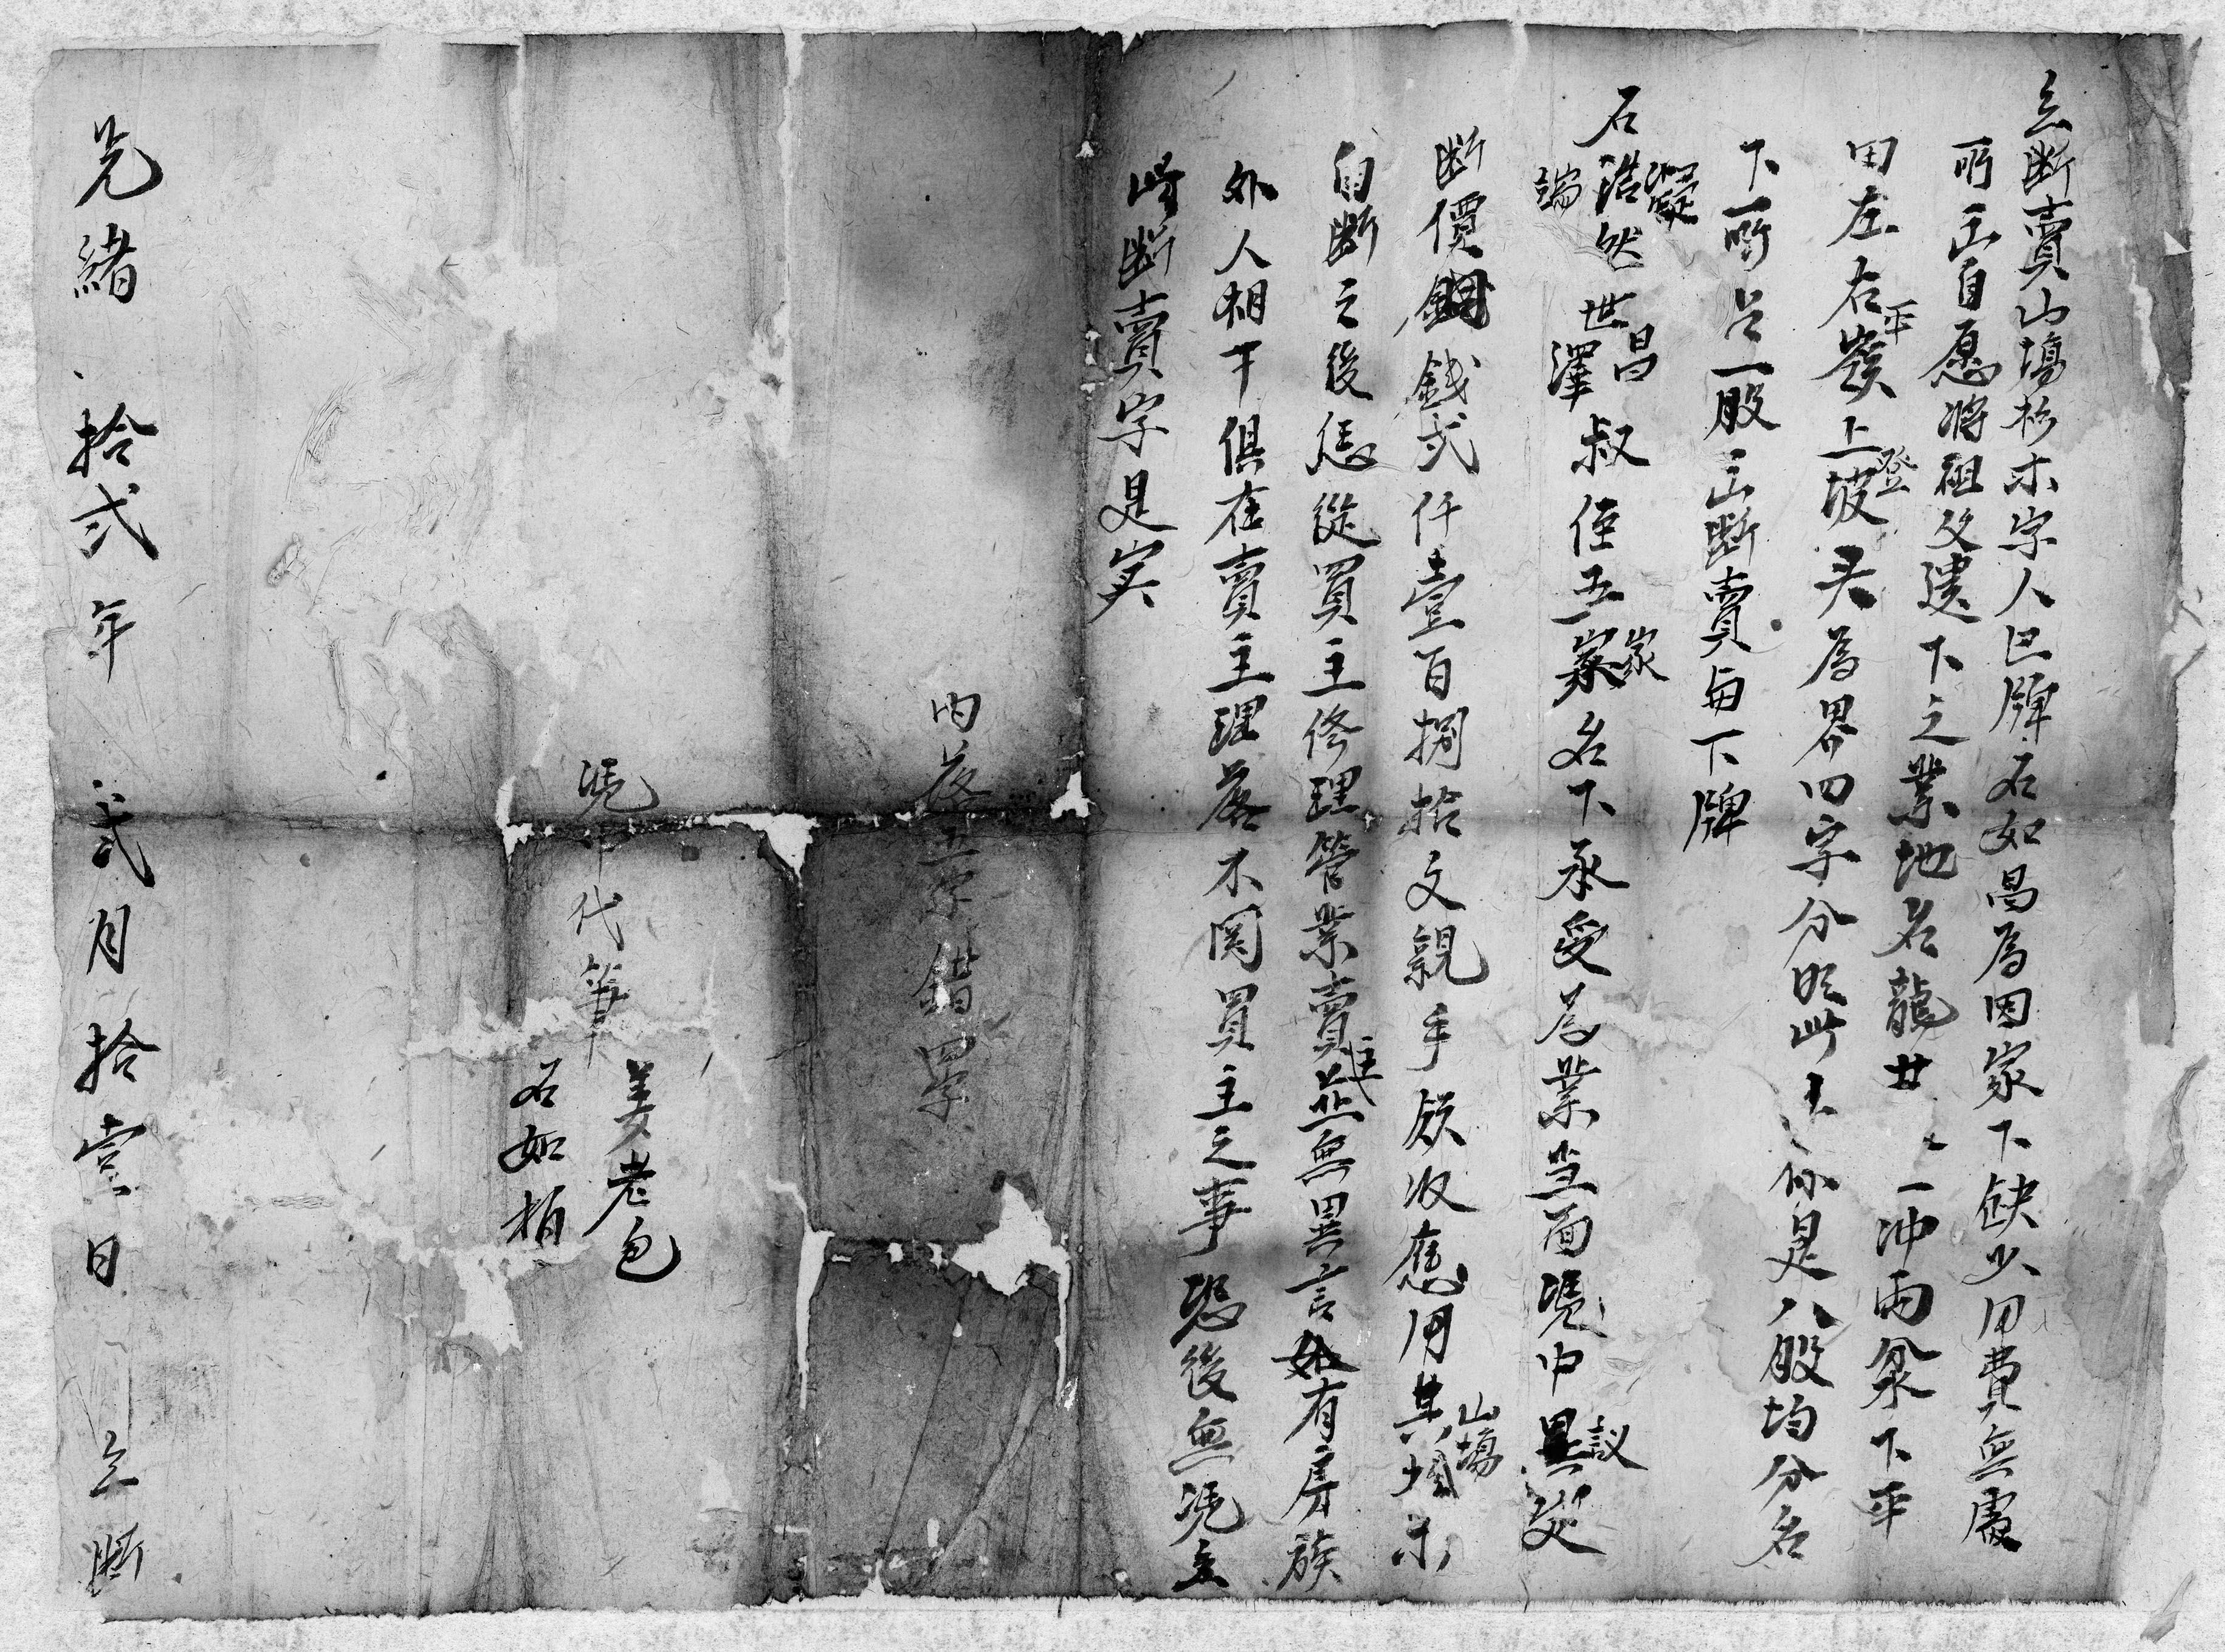 立断賣山塲杉木字人巴牌石如昌為因家下缺少用費無處
所出自愿將祖父遺下之業地名龍廿一冲両籴下平
田左右平嶺上登坡头為界四字分明此山係是八股均分名
下一所占一股出断賣与下牌
石凝浩端然世昌澤叔侄五家名下承受為業当面凴中議定
断價銅銭弍仟壹百捌拾文親手領收應用其山塲杉木
自断之後恁從買主修理管業賣主並無異言如有房族
外人相干俱在賣主理落不関買主之事恐後無凴立
此断賣字是实
内落五字錯四字
凴中代筆 姜老包
石如栢
光緒拾弍年弍月拾壹日立断